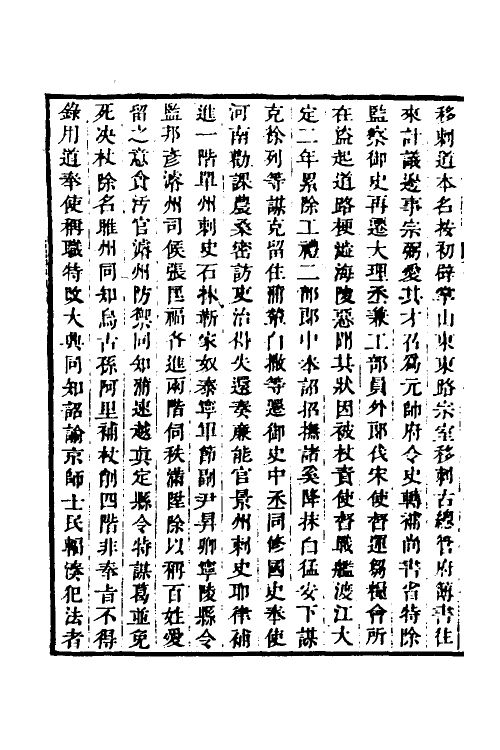 移剌道本名按初辟掌山東東路宗室移剌古總管府簿書往
來計議邊事宗弼愛其才召爲元帥府令史轉補尚書省特除
監察御史再遷大理丞兼工部員外郎伐宋使督運芻糧會所
在盜起道路梗澁海陵惡聞其狀因被杖責使督戰艦渡江大
定二年累除工禮二部郎中奉詔招撫諸奚降抹白猛安下謀
克徐列等謀克留住蒲輦白撒等遷御史中丞同修國史奉使
河南勸課農桑密訪吏治得失還奏廉能官景州刺史耶律補
進一階單州刺史石抹靳家奴泰寧軍節副尹昇卿寧陵縣令
監邦彥濬州司候張匡福各進兩階伺秩滿陞除以稱百姓愛
留之意貪汚官濬州防禦同知蒲速越眞定縣令特謀葛並免
死決杖除名睢州同知烏古孫阿里補杖削四階非奉旨不得
錄用道奉使稱職特改大興同知詔諭京師士民輻湊犯法者